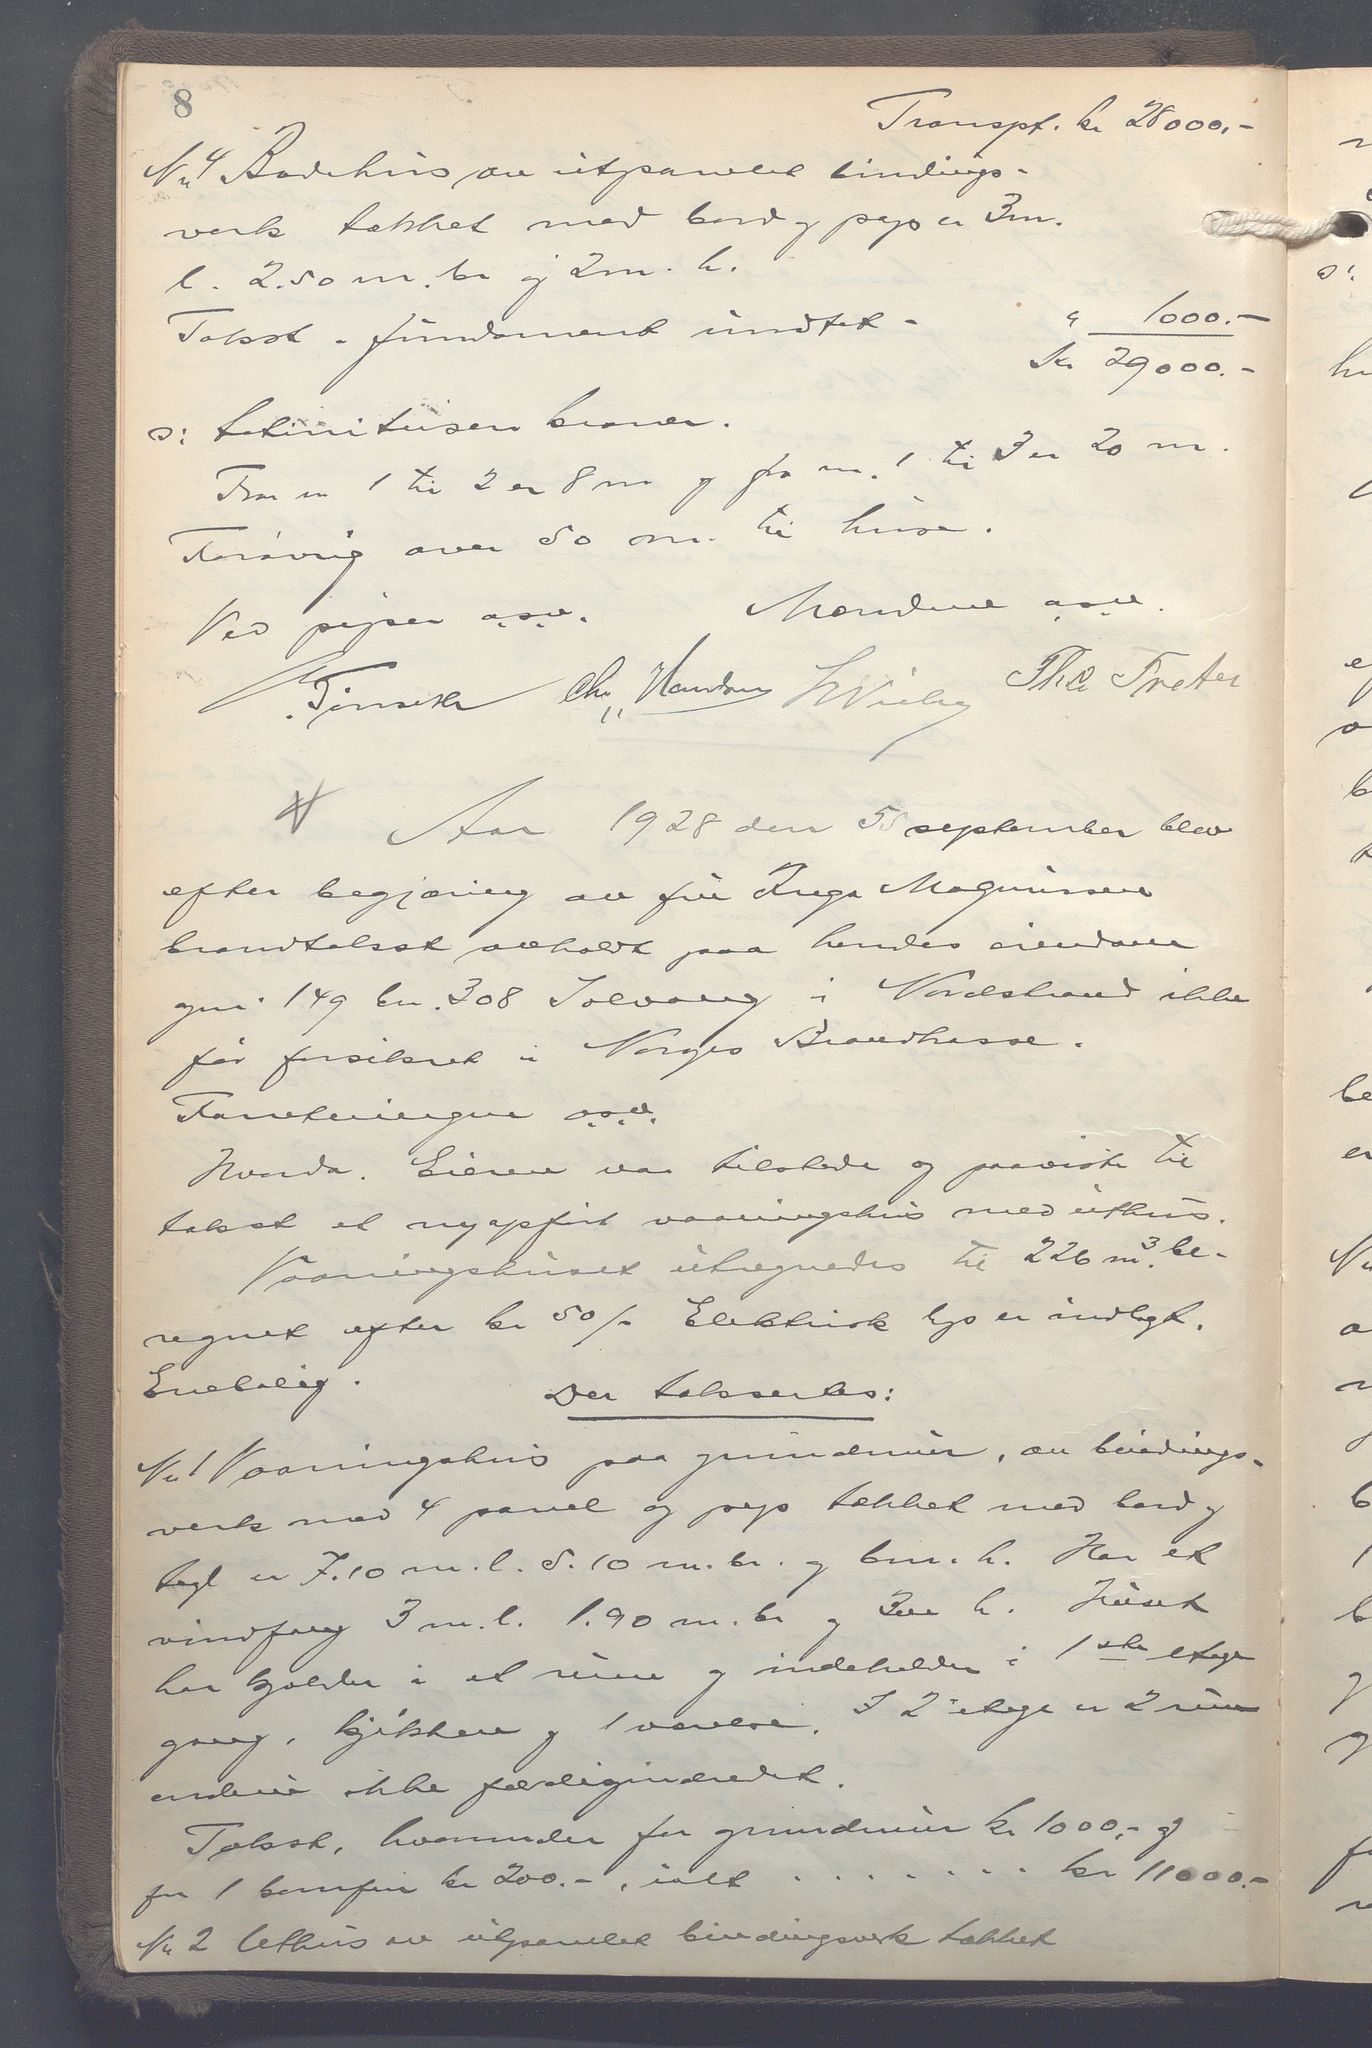 8
Transpt. kr 28000.-
No 4 Badehus av utpanelet bindings-
verk tækket med bord og pap er 3 m.
l. 2.50 m. br og 2 m. h.
Takst - fundament undtat - " 1000.-
Kr 29000.-
ɔ: totinitusen kroner.
Fra nr 1 til 2 er 8 m og fra nr. 1 til 3 er 20 m.
Forøvrig over 50 m. til huse.
Ved peiser o.s.v. Mændene o.s.v.
Chr. Th.
Aar 1928 den 5 september blev
efter begjæring av fru Inga Magnussen
brandtakst avholdt paa hendes eiendom
gnr 149 bn. 308 Solvang i Nordstrand ikke
før forsikret i Norges Brandkasse.
Forretningen o.s.v.
Hvorda. Eieren var tilstede og paaviste til
takst et nyopført vaaningshus med uthus.
Vaaningshuset utregnedes til 226 m³. be-
regnet efter kr 50/- Elektrisk lys er indlagt.
Enebolig.
Der taksertes:
No 1 Vaaningshus paa grundmur, av bindings-
verk med 4 panel og pap tækket med bord og
tegl er 7.10 m. l. 5.10 m. br. og 6 m. h. Har et
vindfang 3 m. l. 1.90 m. br og 3 m h. Huset
har kjælder i et rum og indeholder i 1ste etage
gang, kjøkken og 1 værelse. I 2 etage er 2 rum
endnu ikke færdigindredet.
Takst, hvorunder for grundmur kr 1000,- og
for 1 komfur kr 200.-, ialt . . . . . . . kr 11000.-
No 2 Uthus av utpanelet bindingsverk tækket